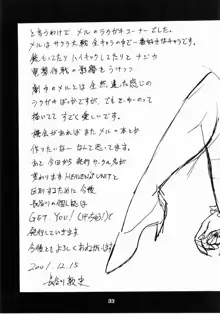 と言うわけで メルのラクガキコーナーでした。
メルはサクラ大戦 全キャラの中で一番好きなキャラです。
銃もってたり ハイキックしてたりと ナニカ
電撃作戦の影響をうけつつ
劇中のメルとは 全然 違った感じの
ラクガキばっかですが、でもまーかって
描いてて すごく楽しいです。
機会があればまた メル一本とか
作りたいなー なんて思ってます。
あと 今回から 発行サークル名が
変わります HEAVEN'S UNITと
区別するために 今後
長谷川の個人誌は
GET YOU!
発行していきます
今後ともよろしくおねがいします
2001.12.15